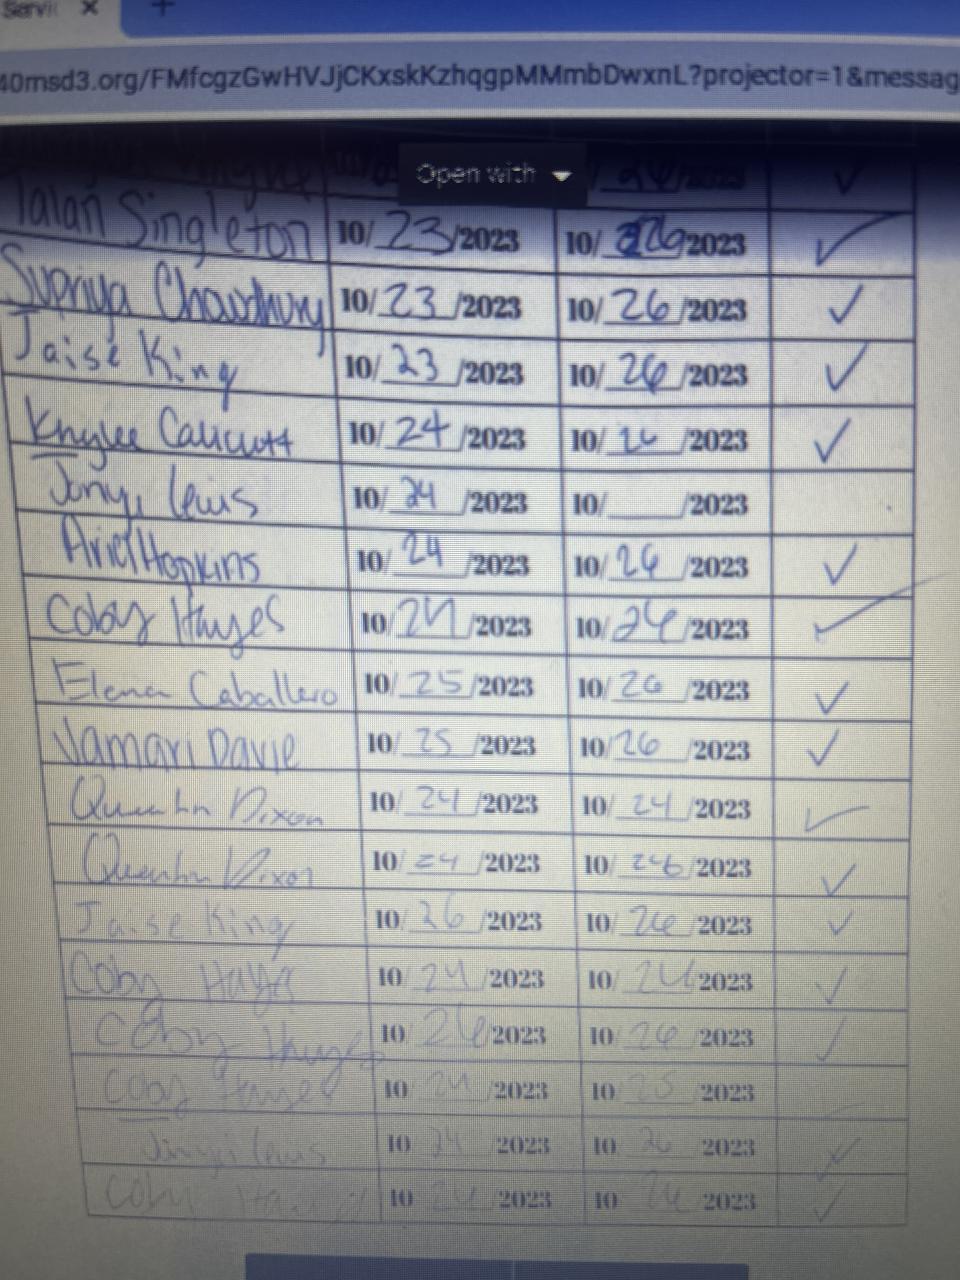 Servic × +
40msd3.org/FMfcgzGwHVJjCKxskKzhqgpMMmbDwxnL?projector=1&messag
Open with
26 2023 ✓
Jalan Singleton 10/23/2023 10/26/2023 ✓
Supriya Chowdhury 10/23/2023 10/26/2023 ✓
Jaise King 10/23/2023 10/26/2023 ✓
Knylee Calicutt 10/24/2023 10/26/2023 ✓
Jinyi Lewis 10/24/2023 10/____/2023
Ariel Hopkins 10/24/2023 10/26/2023 ✓
Coby Hayes 10/24/2023 10/26/2023 ✓
Elena Caballero 10/25/2023 10/26/2023 ✓
Jamari Davie 10/25/2023 10/26/2023 ✓
Quentin Dixon 10/24/2023 10/24/2023 ✓
Quentin Dixon 10/24/2023 10/246/2023 ✓
Jaise King 10/26/2023 10/26/2023 ✓
Coby Hayes 10/24/2023 10/26/2023 ✓
Coby Hayes 10/26/2023 10/26/2023 ✓
Coby Hayes 10 24 2023 10 25 2023
Jinyi Lewis 10 24 2023 10 26 2023 ✓
Coby 10 26 2023 10 26 2023 ✓